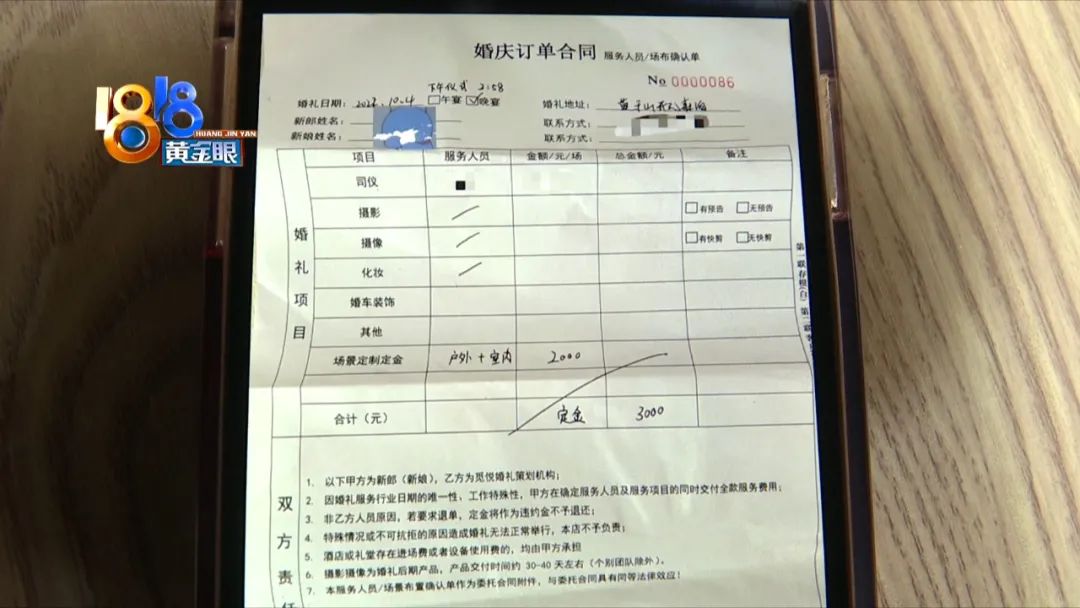 1818
HUANG JIN YAN
黄金眼
婚庆订单合同 服务人员/场布确认单
No 0000086
下午仪式 2:58
婚礼日期: 10.4 午宴 晚宴 婚礼地址:
新郎姓名: 联系方式:
新娘姓名: 联系方式:
项目 服务人员 金额/元/场 总金额/元 备注
婚礼项目
司仪
摄影 有预告 无预告
摄像 有快剪 无快剪
化妆
婚车装饰
其他
场景定制定金 户外+室内 2000
合计(元) 定金 3000
第一联存根(白) 第二联
双方责
1. 以下甲方为新郎(新娘),乙方为觅悦婚礼策划机构;
2. 因婚礼服务行业日期的唯一性、工作特殊性,甲方在确定服务人员及服务项目的同时交付全款服务费用;
3. 非乙方人员原因,若要求退单,定金将作为违约金不予退还;
4. 特殊情况或不可抗拒的原因造成婚礼无法正常举行,本店不予负责;
5. 酒店或礼堂存在进场费或者设备使用费的,均由甲方承担
6. 摄影摄像为婚礼后期产品,产品交付时间约 30-40 天左右(个别团队除外)。
7. 本服务人员/场景布置确认单作为委托合同附件,与委托合同具有同等法律效应!